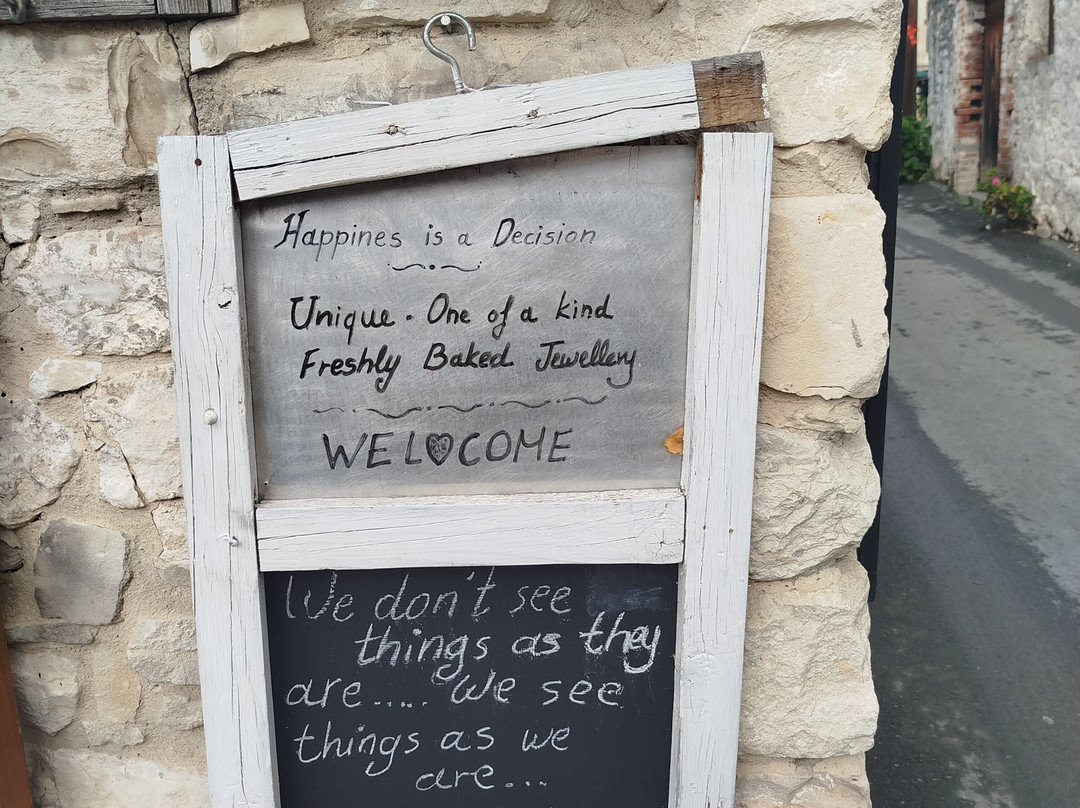 Happines is a Decision
Unique. One of a kind
Freshly Baked Jewellery
WEL♥COME
We don't see
things as they
are..... We see
things as we
are...